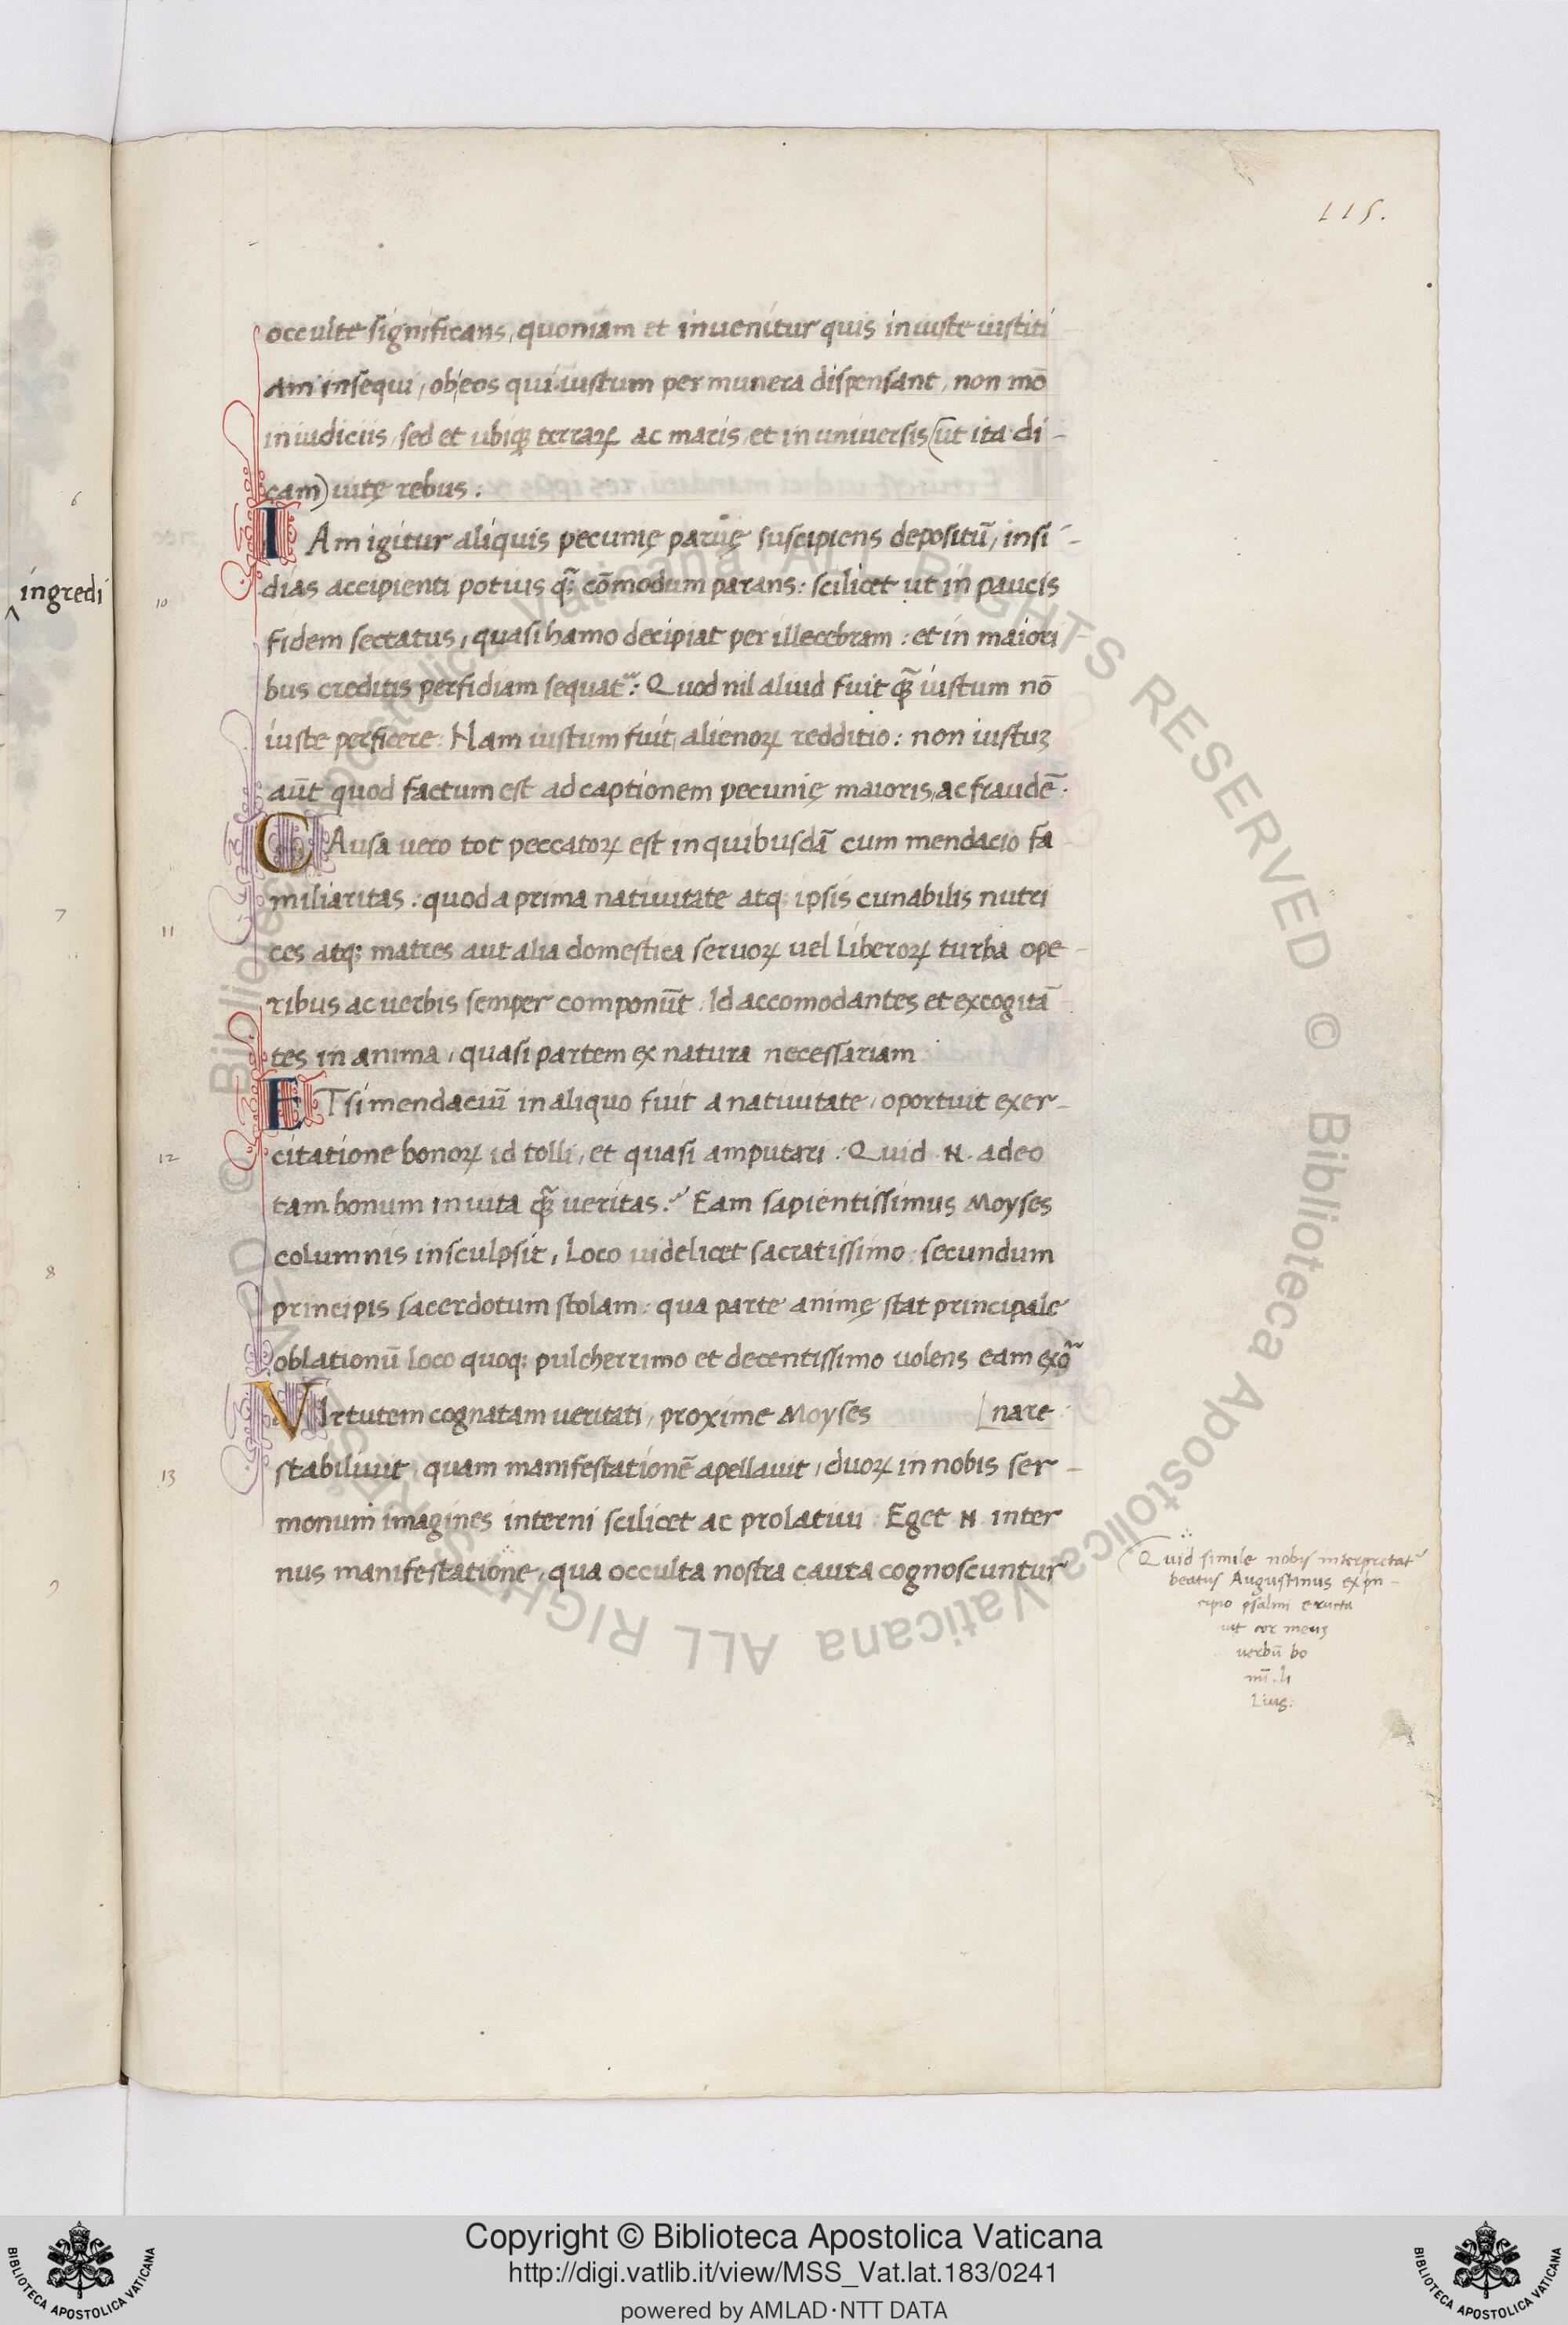 115.
occulte significans, quoniam et inuenitur quis iniuste iustiti
am insequi, ob eos qui iustum per munera dispensant, non mō
in iudiciis, sed et ubiqꝫ terraꝝ ac maris, et in uniuersis (ut ita di-
cam) uitę rebus:
6
IAm igitur aliquis pecunię paruę suscipiens depositū, insi-
ingredi
10
dias accipienti potius q̃ꝫ cōmodum parans: scilicet ut in paucis
fidem sectatus, quasi hamo decipiat per illecebram: et in maiori
bus creditis perfidiam sequat~: Quod nil aliud fuit q̃ꝫ iustum nō
iuste perficere: Nam iustum fuit, alienoꝝ redditio: non iustuꝫ
aūt quod factum est ad captionem pecunię maioris, ac fraudē.
CAusa uero tot peccatoꝝ est in quibusdā cum mendacio fa
miliaritas: quod a prima natiuitate atq; ipsis cunabilis nutri
7
11
ces atq; matres aut alia domestica seruoꝝ uel liberoꝝ turba ope-
ribus ac uerbis semper componūt: Id accomodantes et excogitā
tes in anima, quasi partem ex natura necessariam
ETsi mendaciū in aliquo fuit a natiuitate, oportuit exer-
12
citatione bonoꝝ id tolli, et quasi amputari: Quid .N. adeo
tam bonum in uita q̃ꝫ ueritas? Eam sapientissimus Moyses
columnis insculpsit, loco uidelicet sacratissimo: secundum
8
principis sacerdotum stolam: qua parte animę stat principale
oblationū loco quoq; pulcherrimo et decentissimo uolens eam exo~
VIrtutem cognatam ueritati, proxime Moyses [nare
13
stabiliuit, quam manifestationē apellauit, duoꝝ in nobis ser-
monum imagines interni scilicet ac prolatiui: Eget .N. inter
nus manifestatione, qua occulta nostra cauta cognoscuntur
9
Quid simile nobis interpretat~
beatus Augustinus ex prin-
cipio psalmi eructa
uit cor meuꝫ
uerbū bo
Copyright © Biblioteca Apostolica Vaticana
http://digi.vatlib.it/view/MSS_Vat.lat.183/0241
powered by AMLAD·NTT DATA
BIBLIOTECA APOSTOLICA VATICANA
BIBLIOTECA APOSTOLICA VATICANA
© Biblioteca Apostolica Vaticana ALL RIGHTS RESERVED © Biblioteca Apostolica Vaticana ALL RIGHTS RESERVED